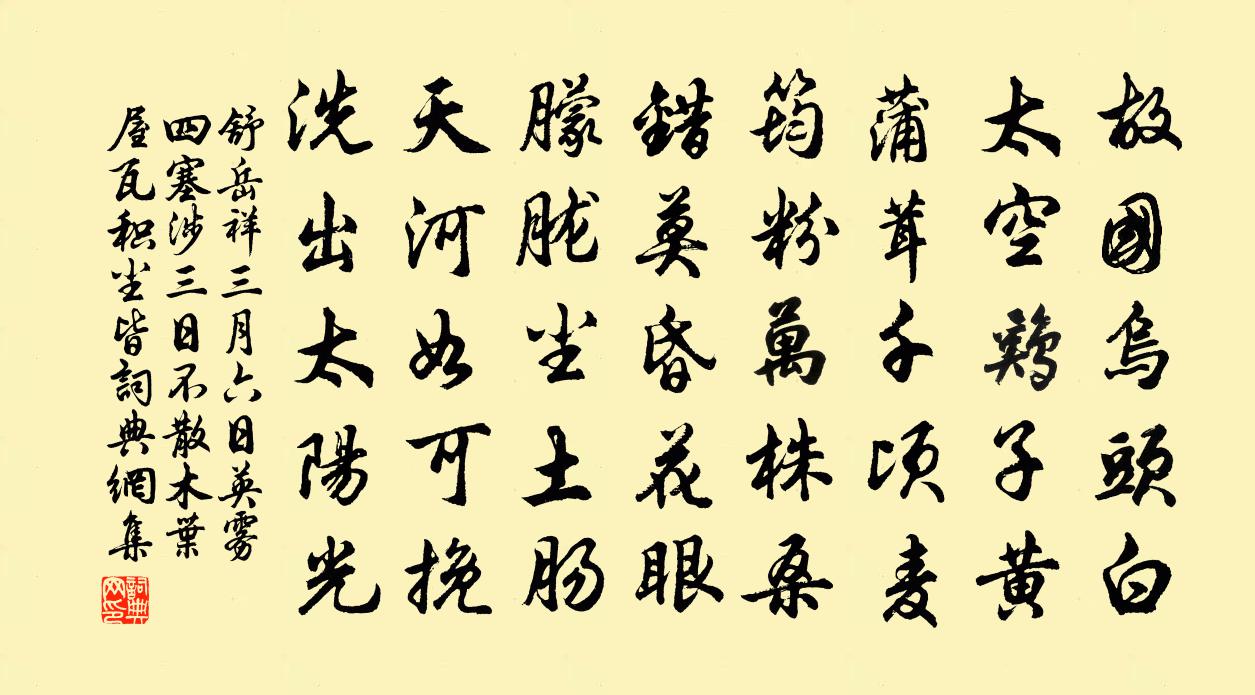 故國烏頭白
太空鷄子黃
蒲茸千頃麦
筠粉萬株桑
錯莫昏花眼
朦胧尘土肠
天河如可挽
洗出太陽光
舒岳祥三月六日英雾
四塞涉三日不散木葉
屋瓦积尘皆詞典網集
詞典网印